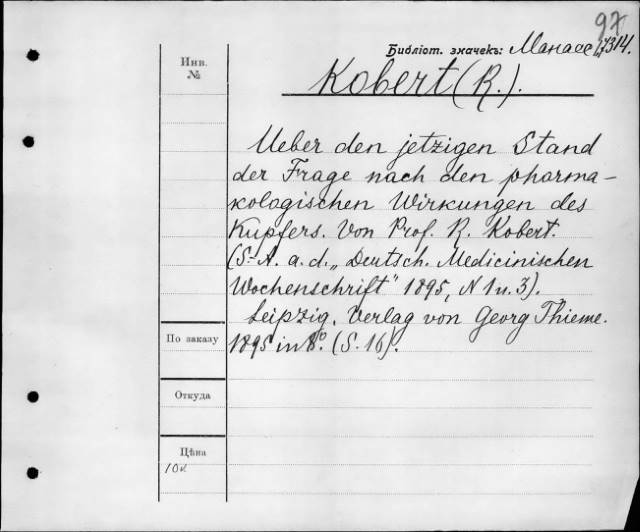 97
Библіот. значекъ: Манассе 7314.
Инв.
№
Kobert (R.).
Ueber den jetzigen Stand
der Frage nach den pharma-
kologischen Wirkungen des
Kupfers. Von Prof. R. Kobert.
(S.-A. a. d. „Deutsch. Medicinischen
Wochenschrift" 1895, N 1 u. 3).
Leipzig. Verlag von Georg Thieme.
1895 in 8º. (S. 16).
По заказу
Откуда
Цѣна
10к